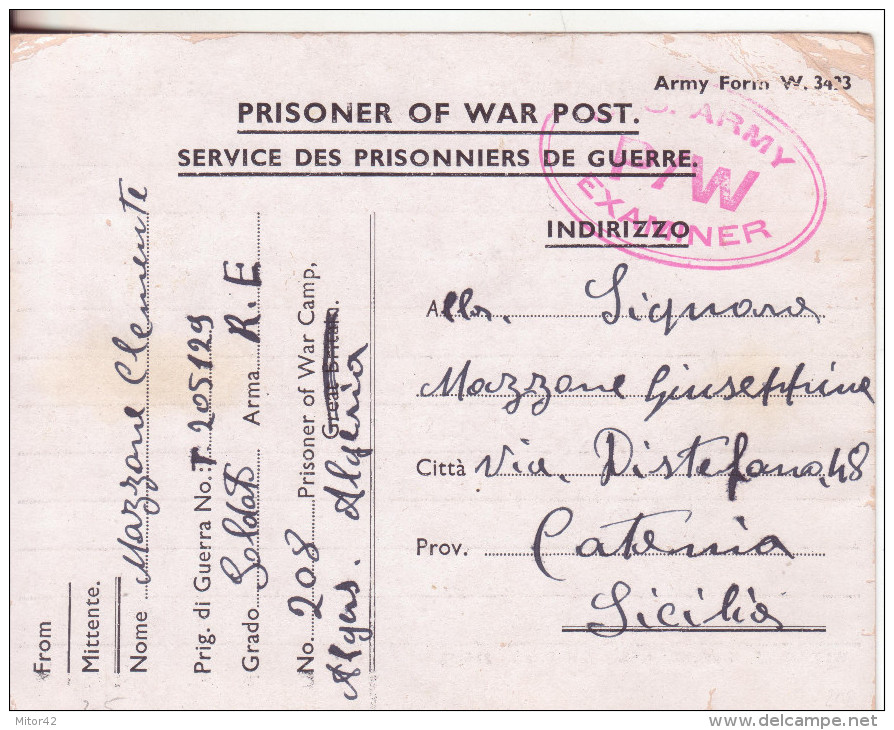 Army Form W. 3493
PRISONER OF WAR POST.
SERVICE DES PRISONNIERS DE GUERRE.
U.S. ARMY
P/W
EXAMINER
INDIRIZZO
Alla. Signora
Mazzone Giuseppina
Città Via. Distefano, 48
Prov. Catania
Sicilia
From
Mittente.
Nome Mazzone Clemente
Prig. di Guerra No.: T 205129
Grado Soldato Arma R.E
No. 208 Prisoner of War Camp,
Great Britain.
Algers. Algeria
Mitor42
www.delcampe.net